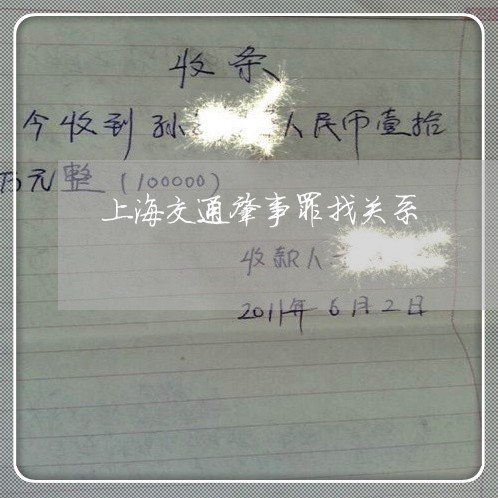 收条
今收到孙 人民币壹拾
万元整(100000)
上海交通肇事罪找关系
收款人
2011年6月2日